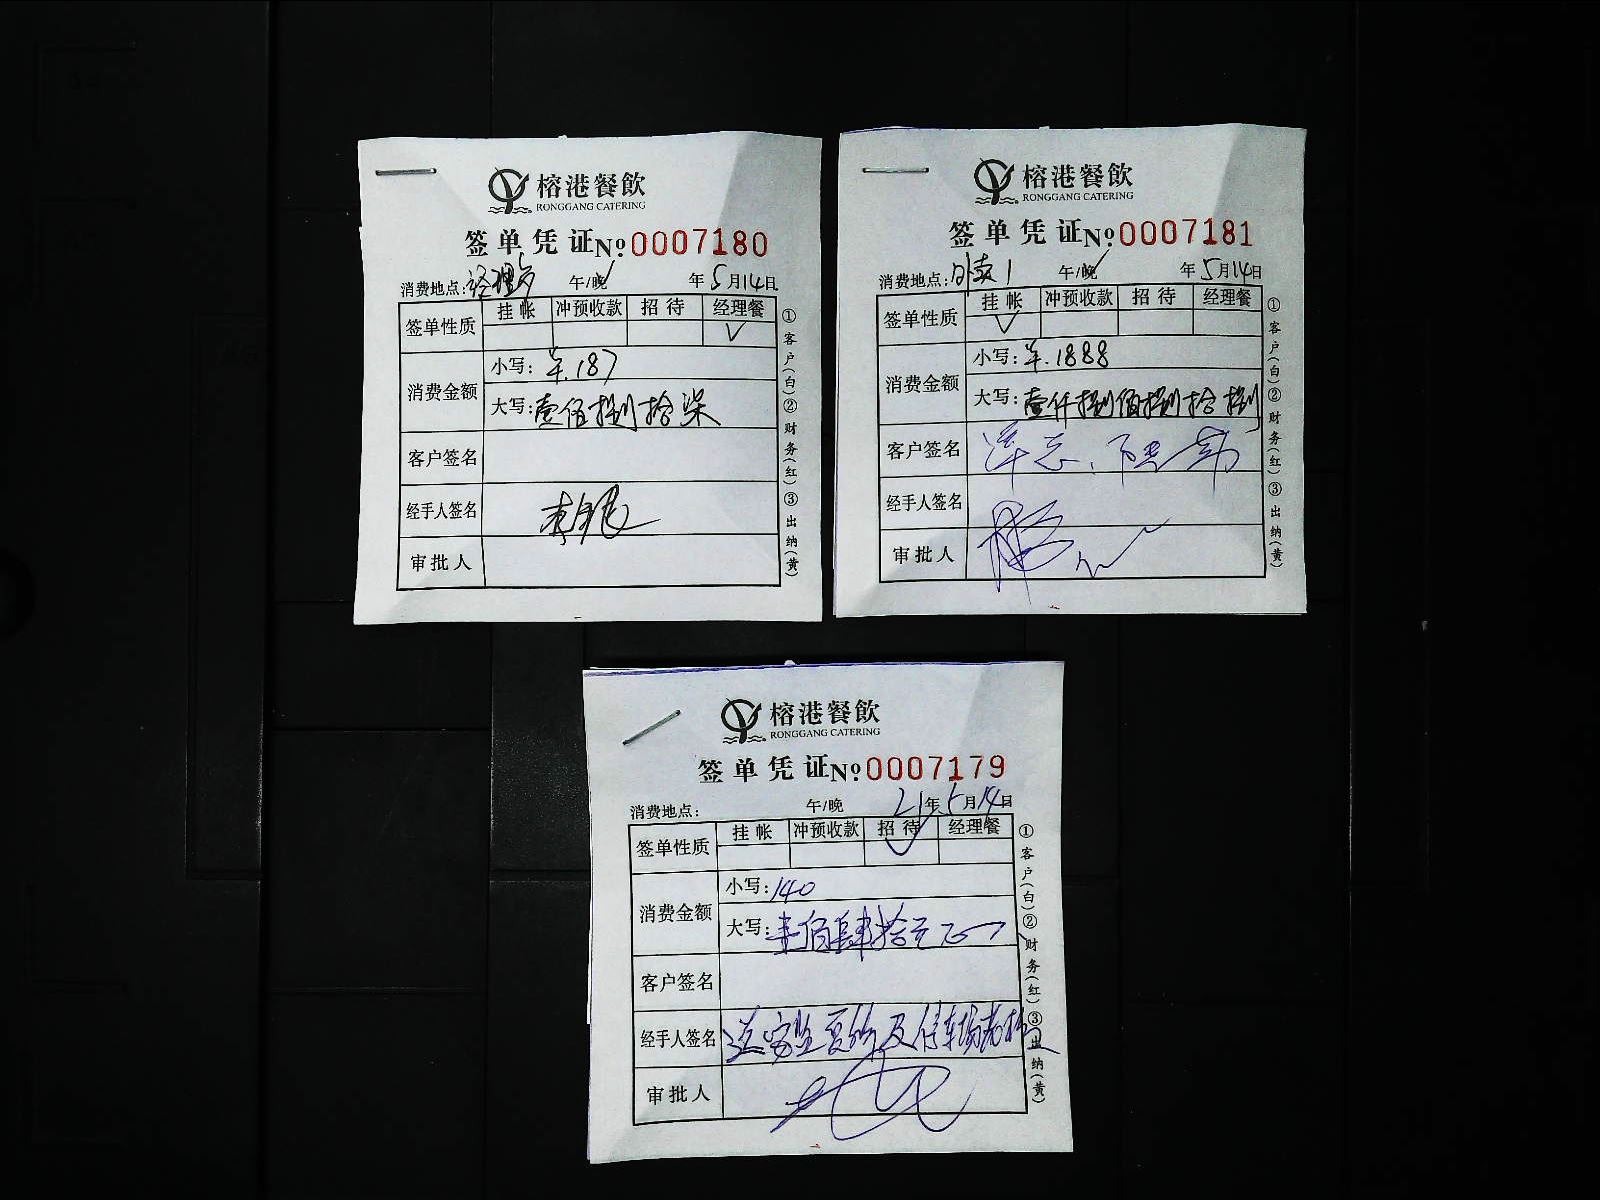 榕港餐飲
RONGGANG CATERING
签单凭证№0007180
消费地点: 午/晚 年5月14日
签单性质 挂帐 冲预收款 招待 经理餐
√
消费金额 小写: ¥.187
大写: 壹佰捌拾柒
客户签名
经手人签名
审批人
①客户(白)②财务(红)③出纳(黄)
榕港餐飲
RONGGANG CATERING
签单凭证№0007181
消费地点: 外卖1 午/晚 年5月14日
签单性质 挂帐 冲预收款 招待 经理餐
√
消费金额 小写: ¥.1888
大写: 壹仟捌佰捌拾捌
客户签名
经手人签名
审批人
①客户(白)②财务(红)③出纳(黄)
榕港餐飲
RONGGANG CATERING
签单凭证№0007179
消费地点: 午/晚 21年5月14日
签单性质 挂帐 冲预收款 招待 经理餐
√
消费金额 小写: 140
大写: 壹佰肆拾元正
客户签名
经手人签名
审批人
①客户(白)②财务(红)③出纳(黄)